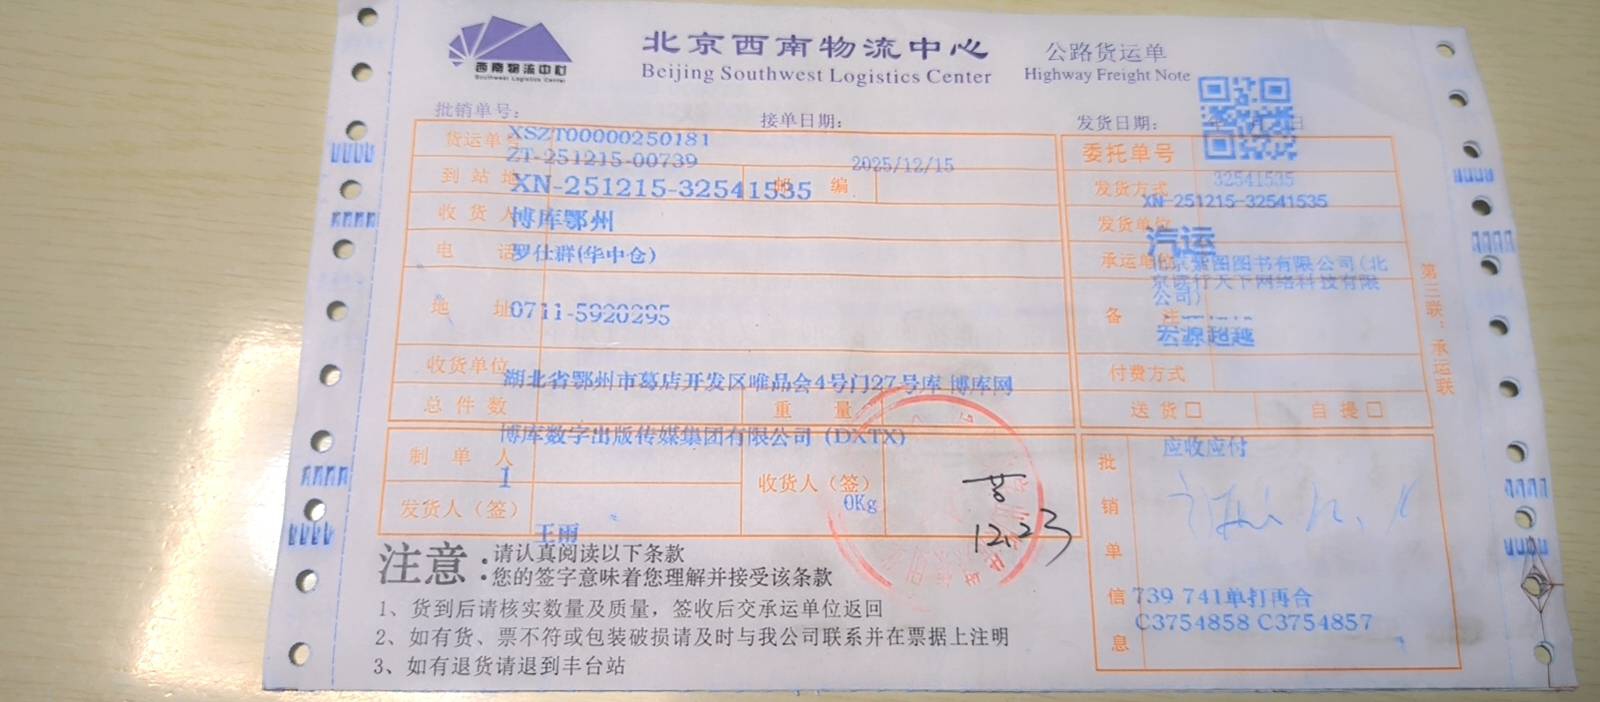 西南物流中心
Southwest Logistics Center
北京西南物流中心
Beijing Southwest Logistics Center
公路货运单
Highway Freight Note
批销单号:
接单日期:
发货日期:
货运单号
XSZT00000250181
ZT-251215-00739
2025/12/15
委托单号
32541535
到站地
XN-251215-32541535
邮 编
发货方式
XN-251215-32541535
收货人
博库鄂州
发货单位
汽运
电 话
罗仕群(华中仓)
承运单位
北京紫图图书有限公司(北
京读行天下网络科技有限
公司)
地 址
0711-5920295
备 注
宏源超越
收货单位
湖北省鄂州市葛店开发区唯品会4号门27号库 博库网
付费方式
总件数
重 量
送货□
自提□
博库数字出版传媒集团有限公司 (DXTX)
应收应付
制单人
1
收货人（签）
0Kg
发货人（签）
王雨
12.23
批销单信息
739 741单打再合
C3754858 C3754857
第三联：承运联
注意：
请认真阅读以下条款
您的签字意味着您理解并接受该条款
1、货到后请核实数量及质量，签收后交承运单位返回
2、如有货、票不符或包装破损请及时与我公司联系并在票据上注明
3、如有退货请退到丰台站